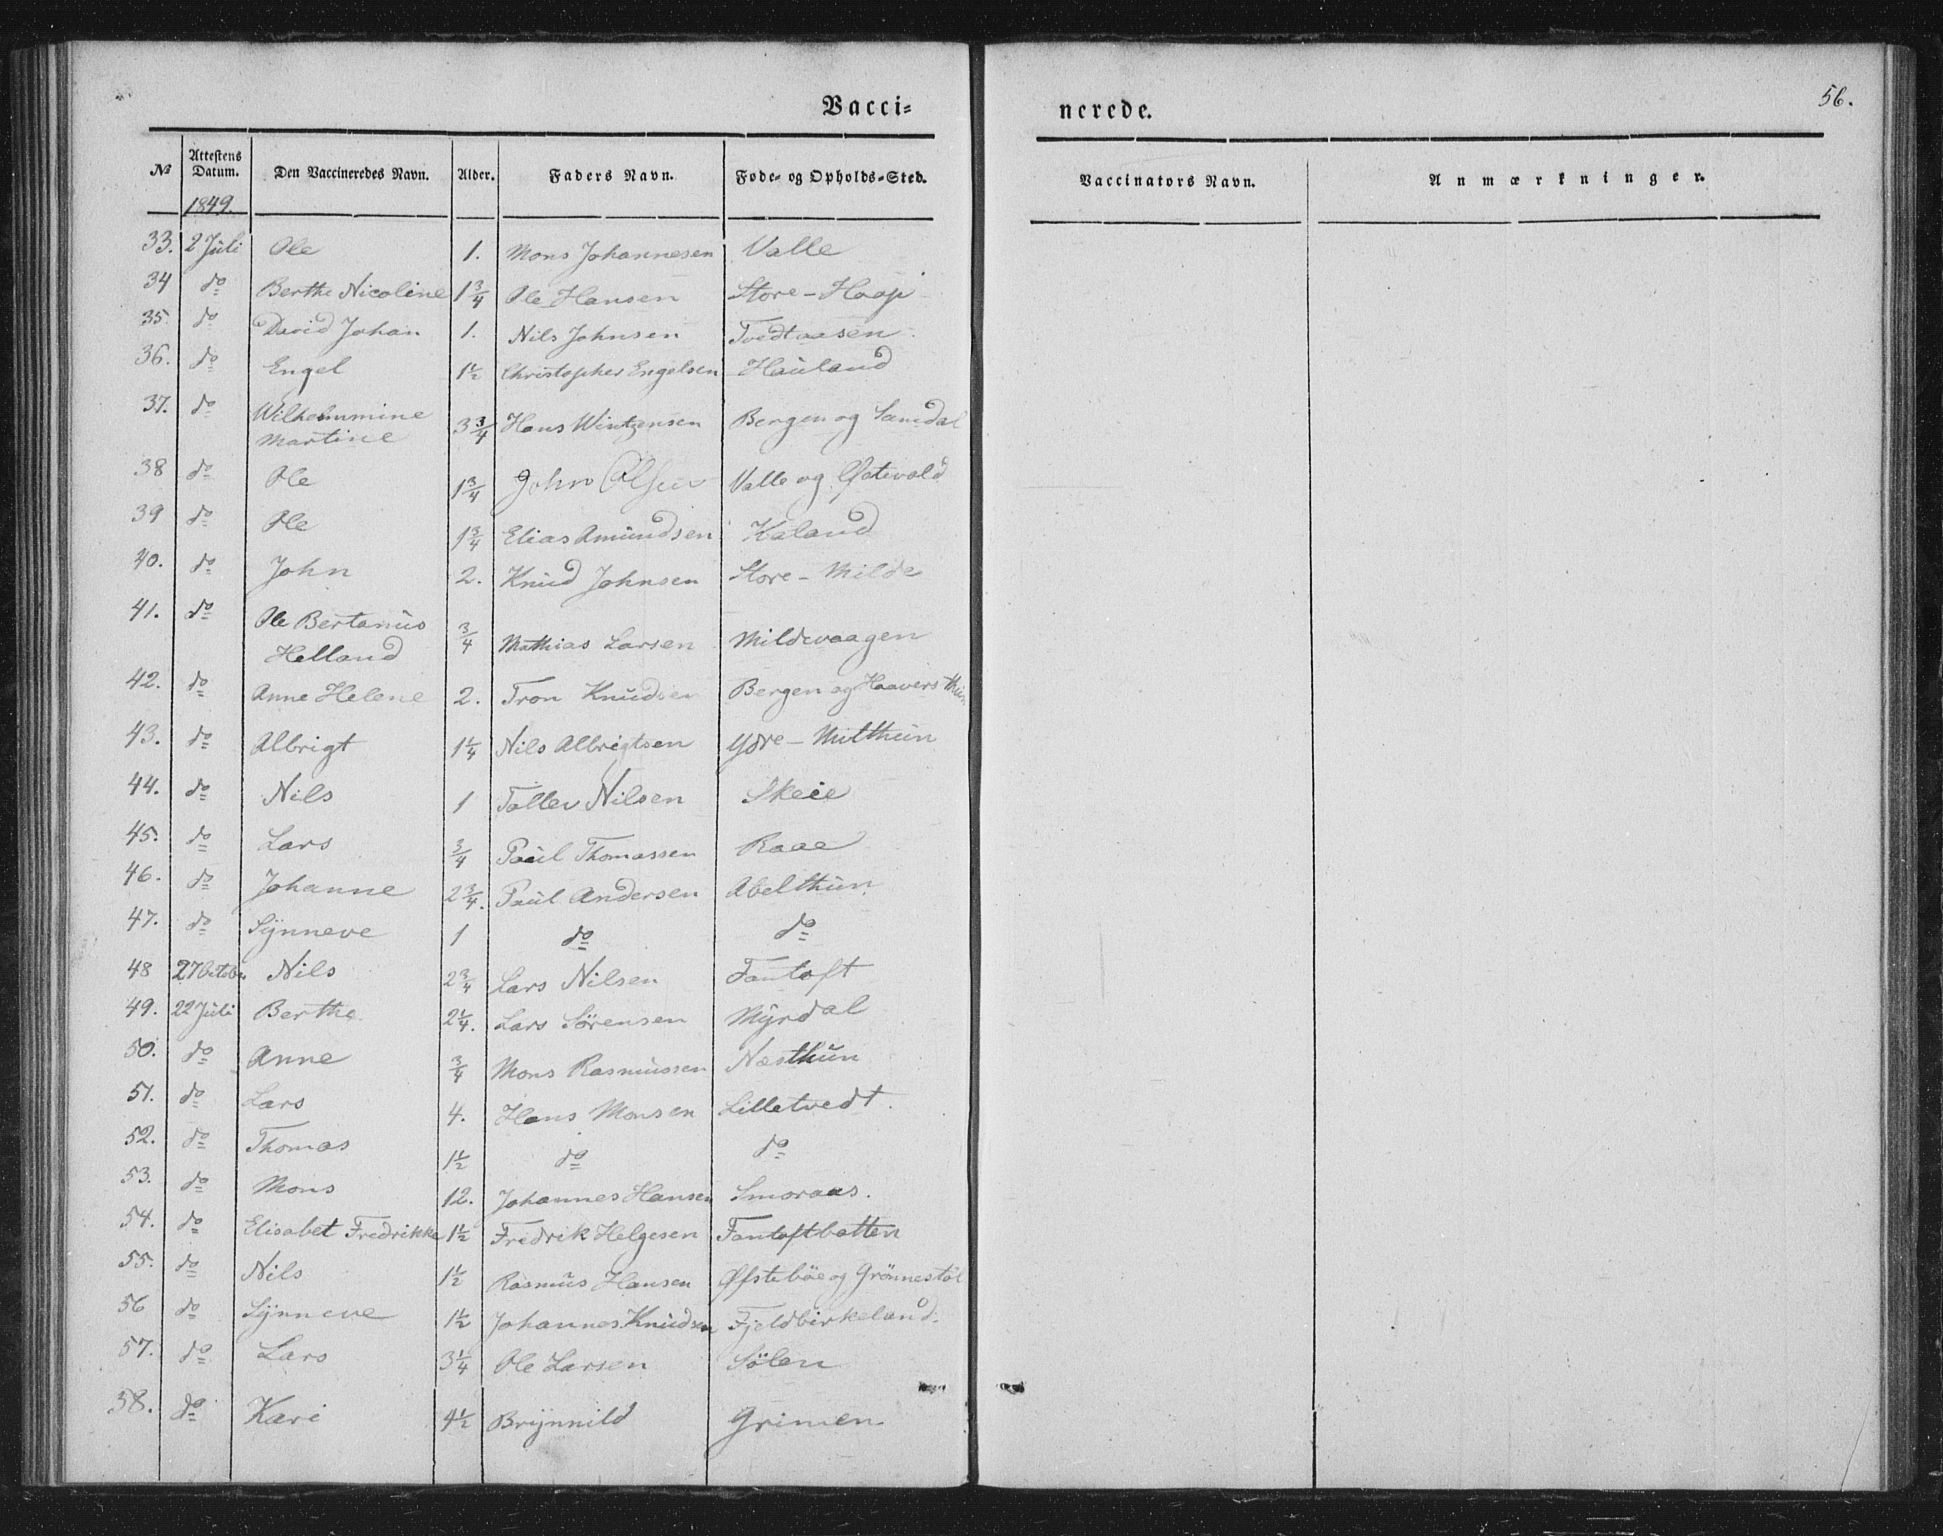 Vacci= nerede. 56.
№ Attestens Datum. Den Vaccineredes Navn. Alder. Faders Navn. Føde- og Opholds-Sted. Vaccinators Navn. Anmærkninger.
1849.
33. 2 Juli Ole 1. Mons Johannesen Valle
34 do Berthe Nicoline 1¾ Ole Hansen Store-Haap
35. do David Johan 1. Nils Johnsen Tvedtaasen
36. do Engel 1½ Christopher Engelsen Hauland
37. do Wilhelmmine
Martine 3¾ Hans Wintzensen Bergen og Samdal
38 do Ole 1¾ John Olsen Valle og Østevold
39 do Ole 1¾ Elias Amundsen Kaland
40. do John 2. Knud Johnsen Store-Milde
41. do Ole Bertanus
Helland ¾ Mathias Larsen Mildevaagen
42. do Anne Helene 2. Tron Knudsen Bergen og Haaversthun
43. do Albrigt 1¼ Nils Albrigtsen Ydre-Milthun
44. do Nils 1 Tollev Nilsen Skeie
45. do Lars ¾ Paul Thomassen Raae
46. do Johanne 2¾. Paul Andersen Abelthun
47. do Synneve 1 do do
48 27 October Nils 2¾ Lars Nilsen Fantoft
49. 22 Juli Berthe 2¼. Lars Sörensen Myrdal
50. do Anne ¾ Mons Rasmussen Næsthun
51. do Lars 4. Hans Monsen Lilletvedt.
52. do Thomas 1½ do do
53. do Mons 12. Johannes Hansen Smoraas.
54. do Elisabet Fredrikke 1½ Fredrik Helgesen Fantoftbotten
55. do Nils 1½ Rasmus Hansen Øfstebøe og Grönnestöl
56 do Synneve 1½ Johannes Knudsen Fjeldbirkeland.
57. do Lars 3¼ Ole Larsen Sölen
58. do Kari 4½ Brynnild Grimen